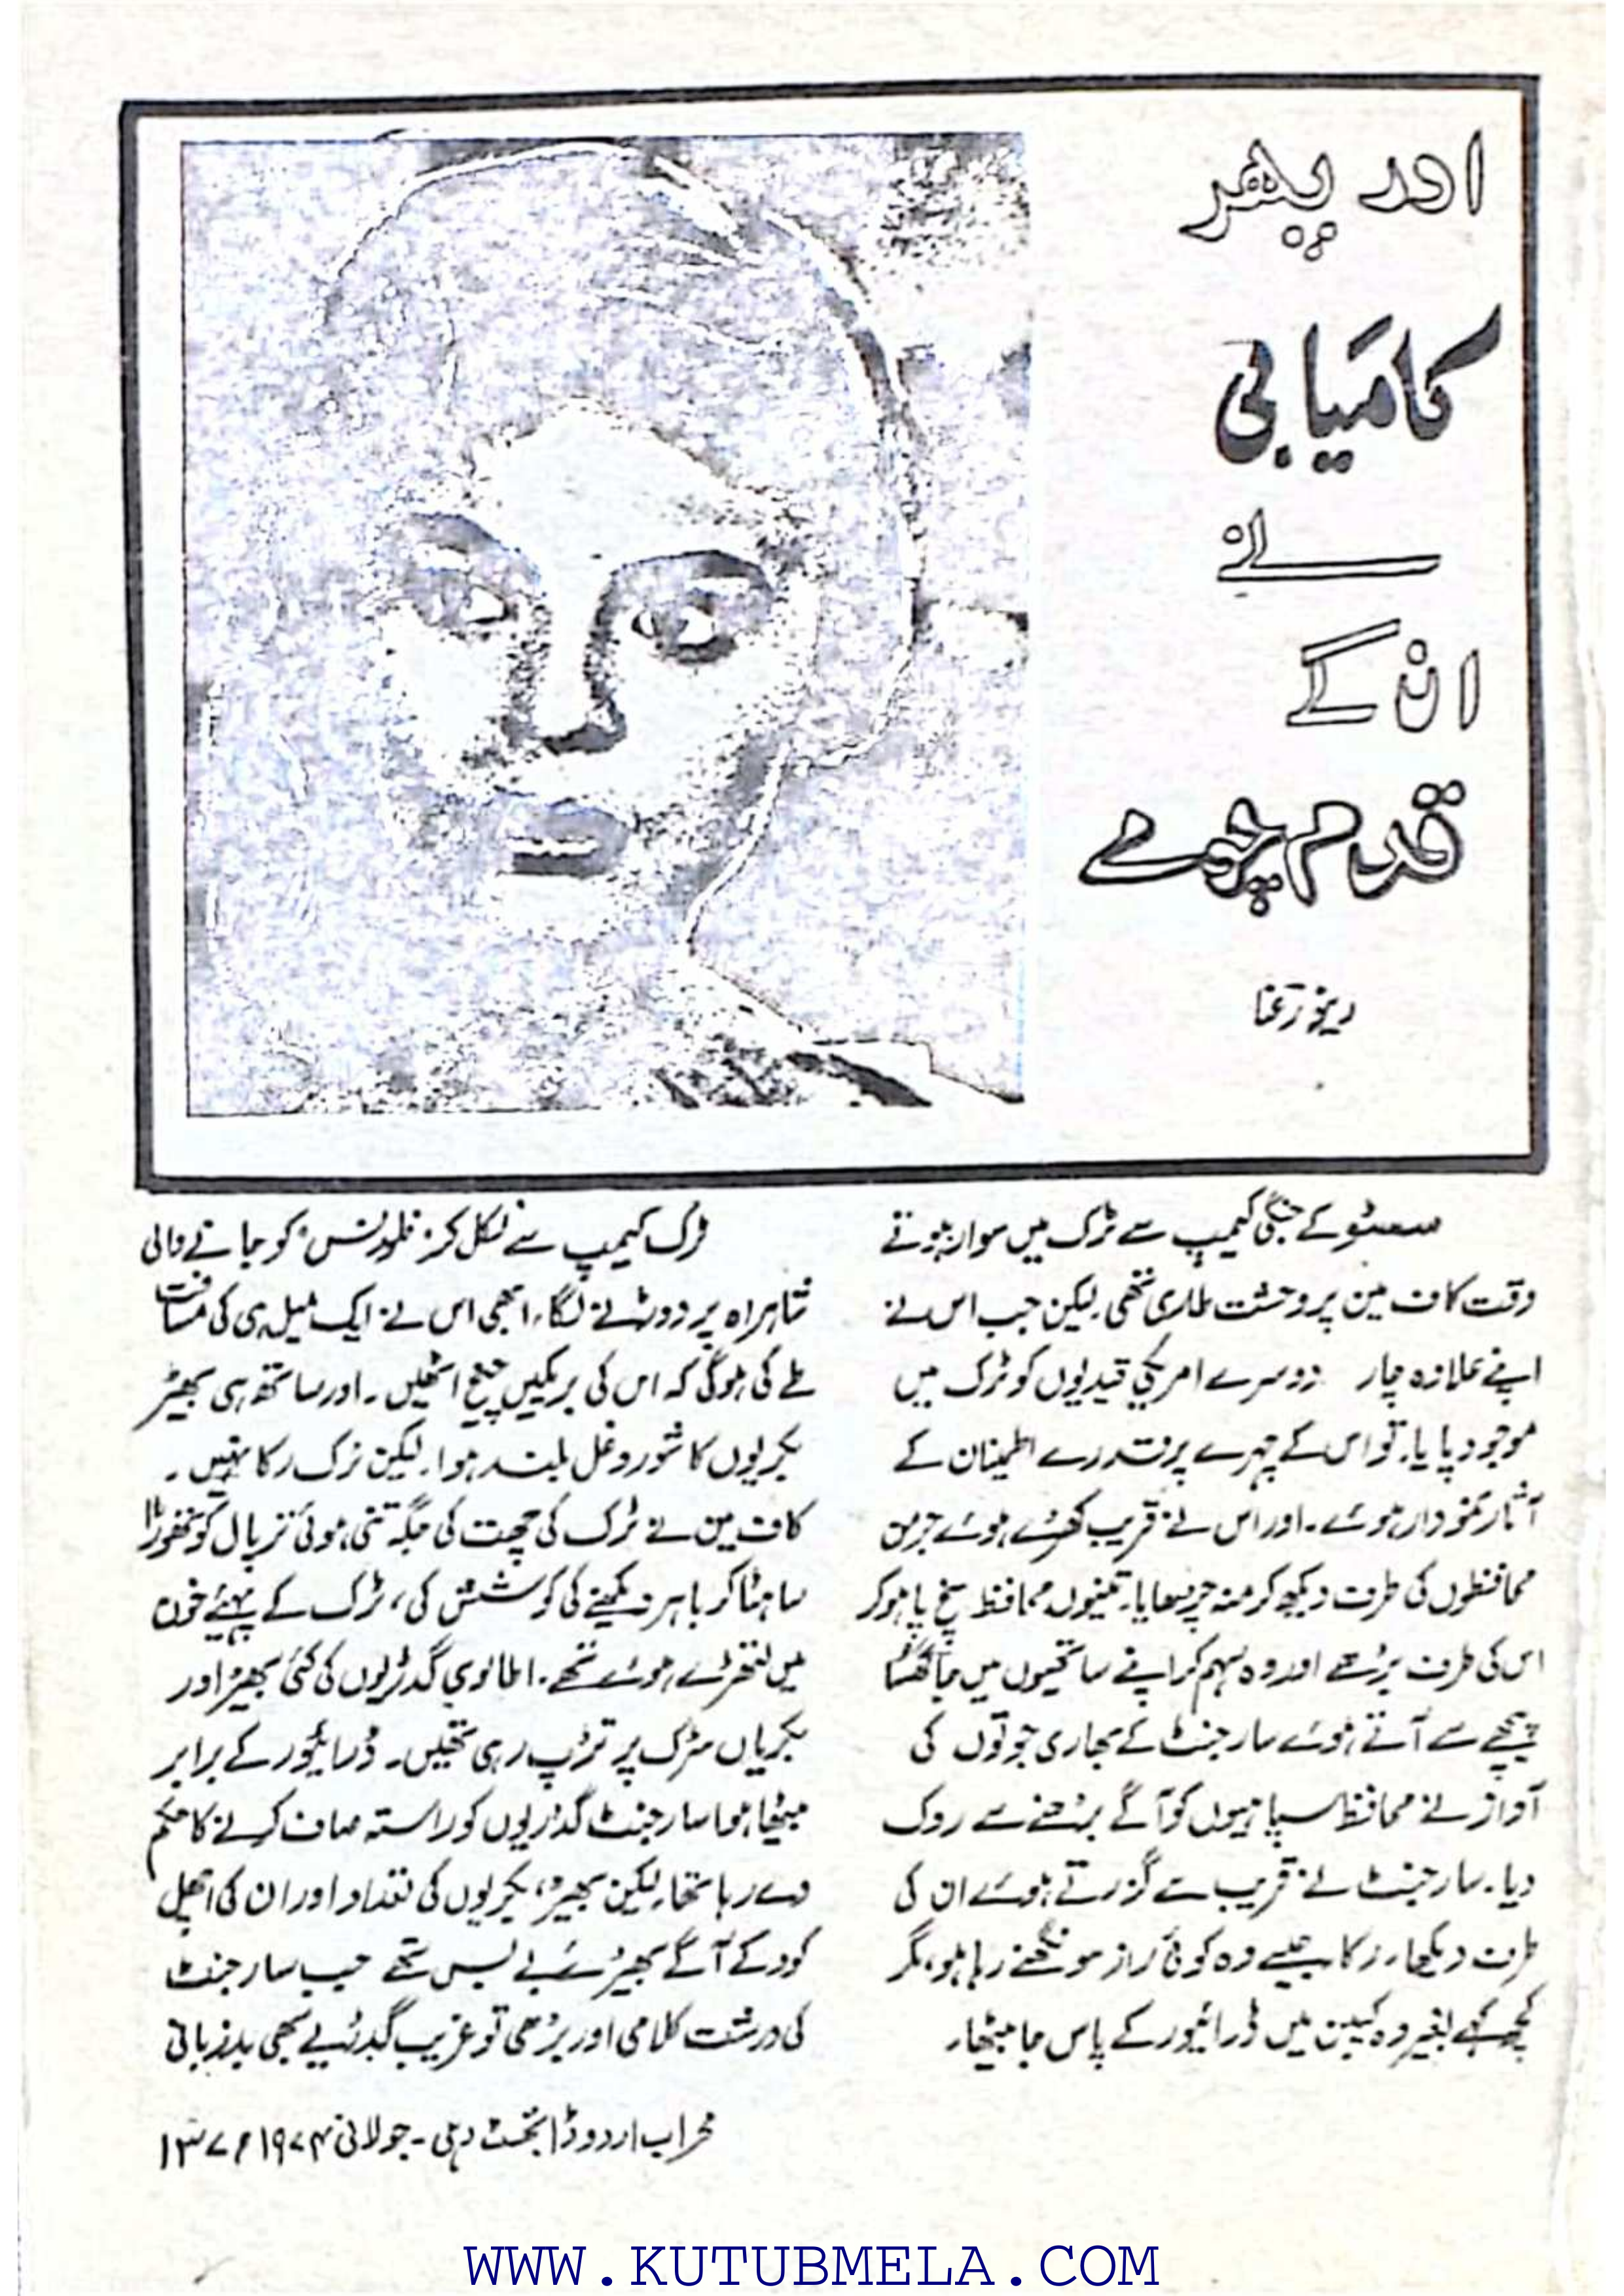 اور پھر
کامیابی
نے
ان کے
قدم چومے
کے جنگی کیمپ سے ٹرک میں سوار ہوتے
وقت کاف مین پر وحشت طاری تھی. لیکن جب اس نے
اپنے علاوہ چار دوسرے امریکی قیدیوں کو ٹرک میں
موجود پایا. تو اس کے چہرے پر قدرے اطمینان کے
آثار نمودار ہوئے۔ اور اس نے قریب کھڑے ہوئے جرمن
محافظوں کی طرف دیکھ کر منہ چڑھایا. تینوں محافظ سیخ پا ہو کر
اس کی طرف بڑھے اور وہ سہم کر اپنے ساتھیوں میں جا گھسا
پیچھے سے آتے ہوئے سارجنٹ کے بھاری جوتوں کی
آواز نے محافظ سپاہیوں کو آگے بڑھنے سے روک
دیا۔ سارجنٹ نے قریب سے گزرتے ہوئے ان کی
طرف دیکھا، رکا جیسے وہ کوئی راز سونگھ رہا ہو، مگر
کچھ کہے بغیر وہ کیبن میں ڈرائیور کے پاس جا بیٹھا.
ٹرک کیمپ سے نکل کر "فلورنس" کو جانے والی
شاہراہ پر دوڑنے لگا، ابھی اس نے ایک میل ہی کی مسافت
طے کی ہوگی کہ اس کی بریکیں چیخ اٹھیں۔ اور ساتھ ہی بھیڑ
بکریوں کا شور و غل بلند ہوا. لیکن ٹرک رکا نہیں۔
کاف مین نے ٹرک کی چھت کی جگہ تنی ہوئی ترپال کو تھوڑا
سا ہٹا کر باہر دیکھنے کی کوشش کی، ٹرک کے پہیے خون
میں لتھڑے ہوئے تھے. اطالوی گڈریوں کی کئی بھیڑ اور
بکریاں سڑک پر تڑپ رہی تھیں۔ ڈرائیور کے برابر
بیٹھا ہوا سارجنٹ گڈریوں کو راستہ صاف کرنے کا حکم
دے رہا تھا. لیکن بھیڑ، بکریوں کی تعداد اور ان کی اچھل
کود کے آگے بے بس تھے جب سارجنٹ
کی درشت کلامی اور بڑھی تو غریب گڈریے بھی بدزبانی
محراب اردو ڈائجسٹ دہلی۔ جولائی ۱۹۷۴ء ۱۳۷
WWW.KUTUBMELA.COM